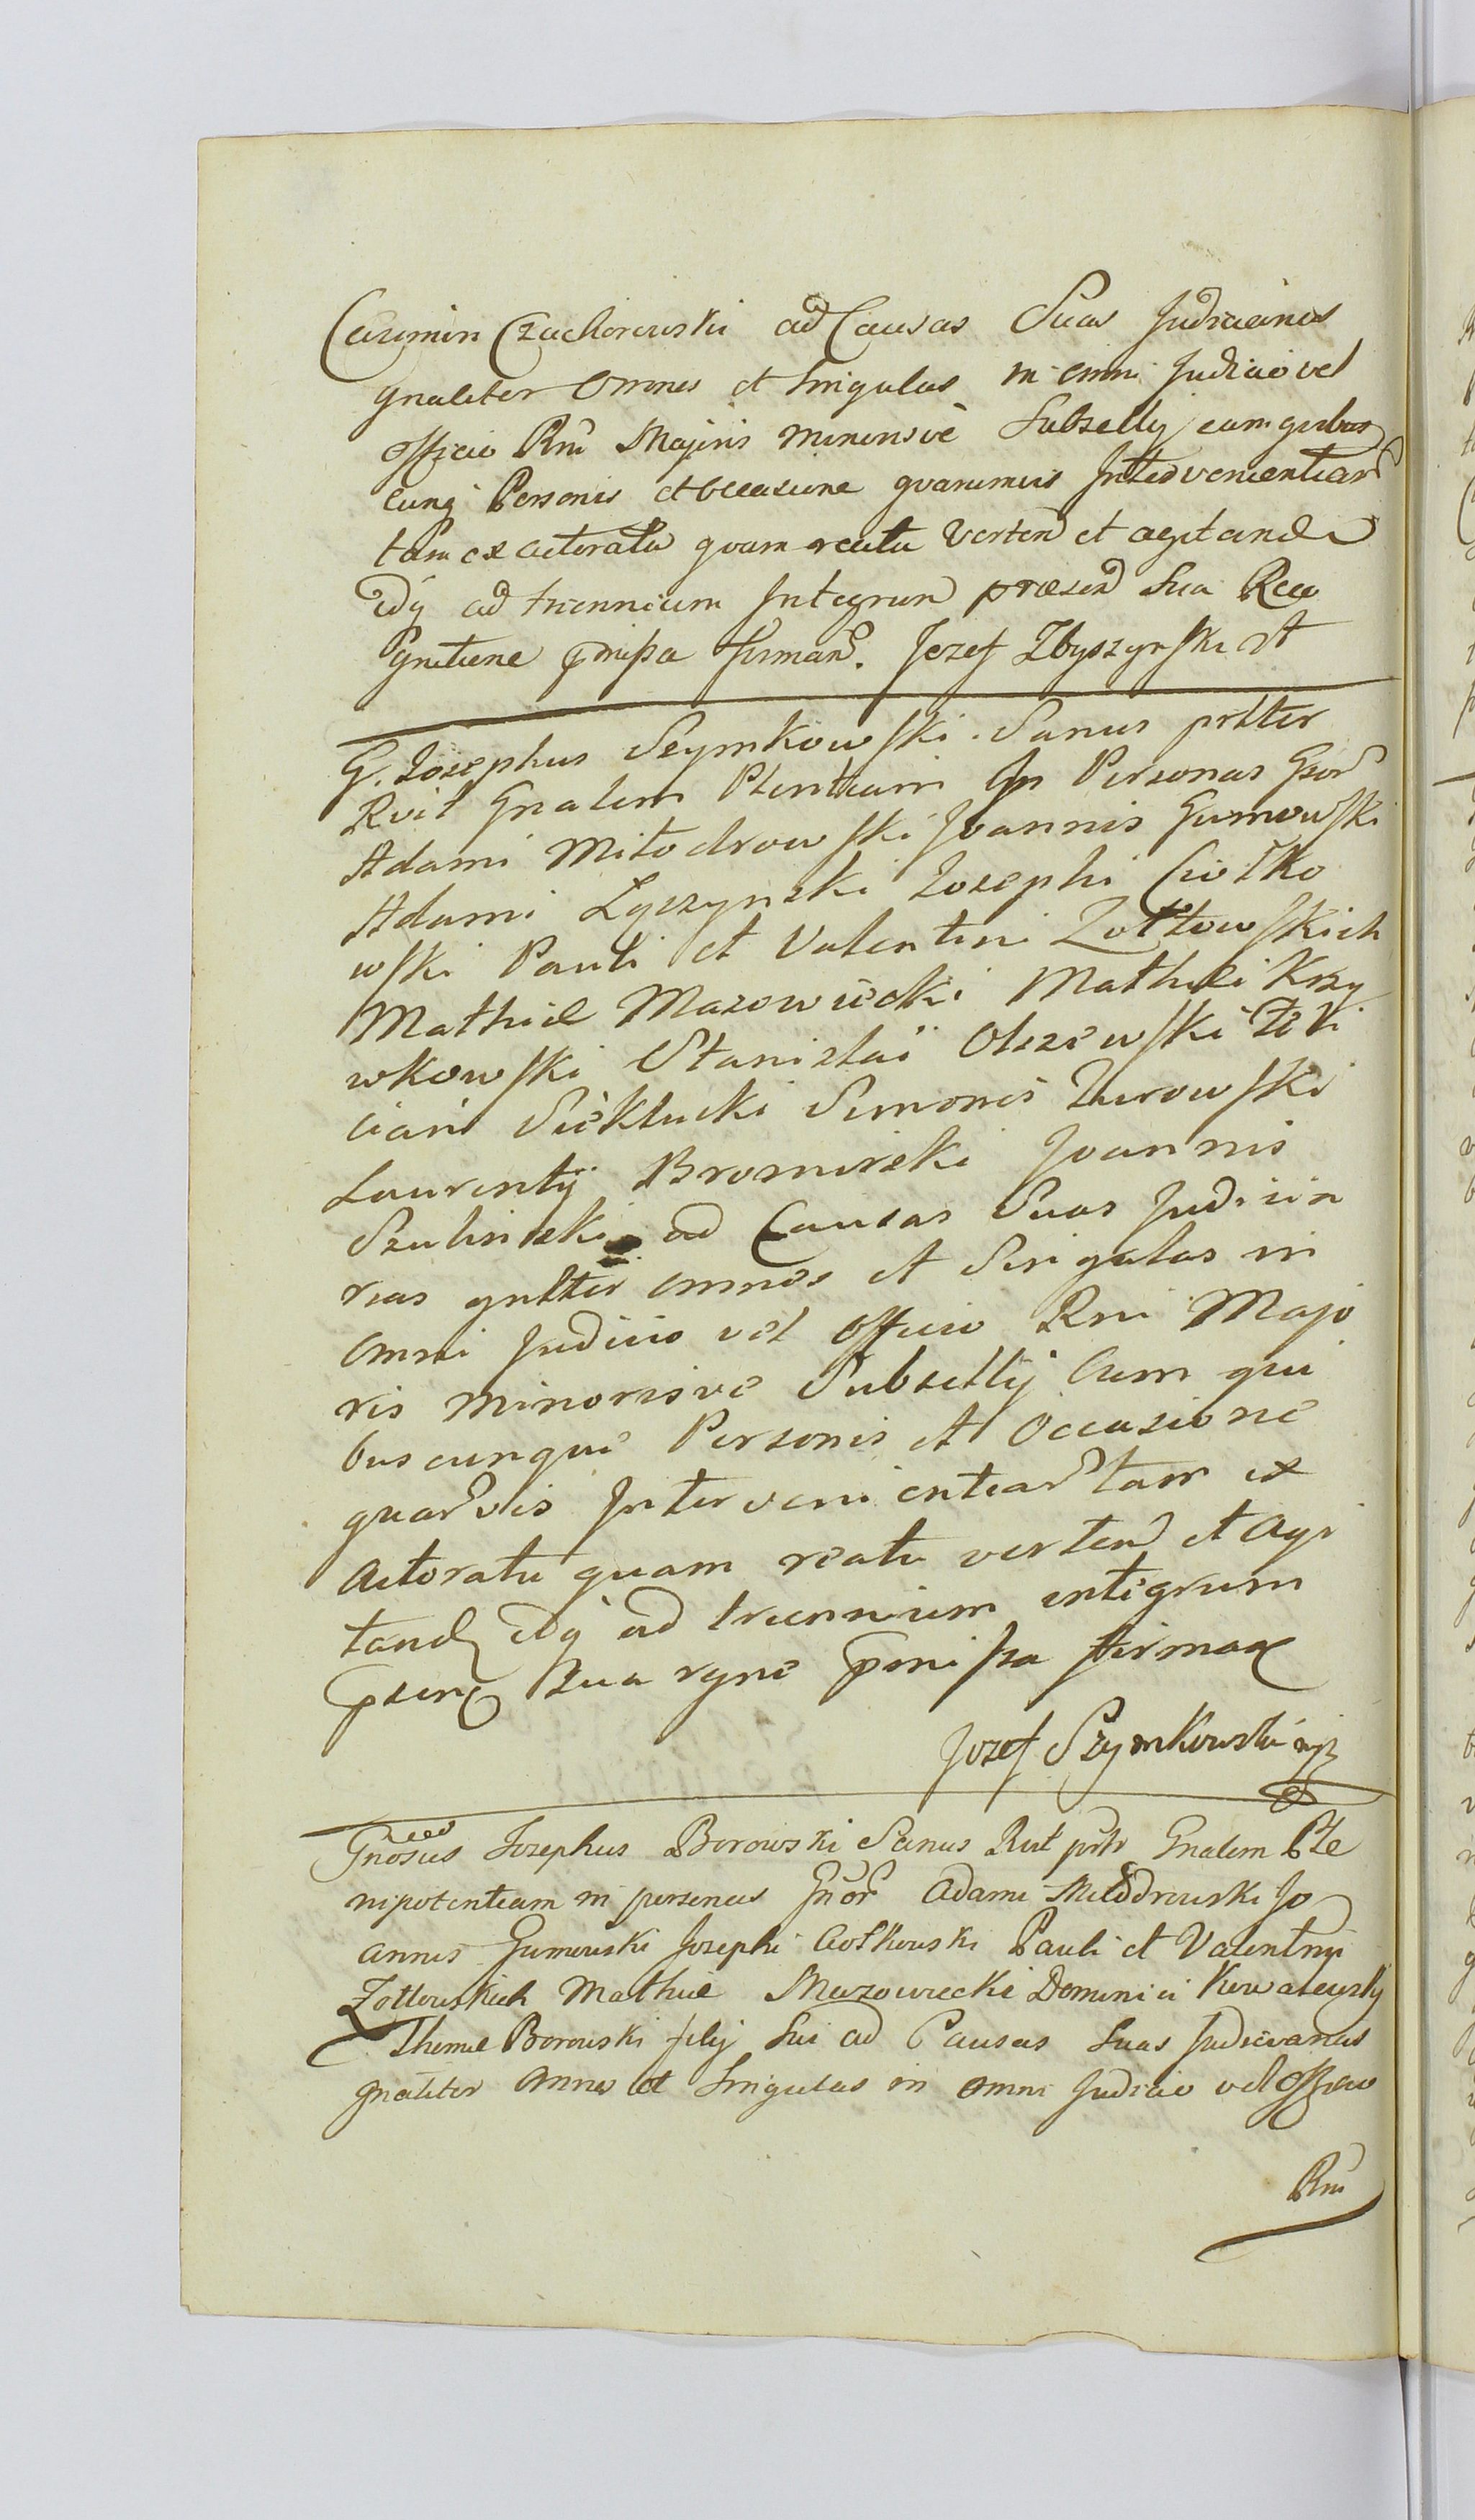 Casimiri Czachorowski ad Causas Suas Judiciarias
gnaliter Omnes et Singulas in omni Judicio vel
officio Rni Majoris Minorisvè Subsellij cum quibus
cunq Personis et Occasione quarumvis Intervenientiar
tam ex actoratu quam reatu Verten et agitand
idq ad triennium Integrum præsen Sua Reco
gnitione pmissa firman. Jozef Zbyszynski
G. Josephus Szymkowski Sanus prtter
Rvit Gnalem Plentiam In Personas Gsor
Adami Miłodrowski Joannis Gumowski
Adami Łyczynski Josephi Ciołko
wski Pauli et Valentini Zołtowskich
Mathiæ Mazowiecki Mathæi Krzy
wkowski Stanislai Olszewski Feli
ciani Siekłucki Simonis Zurowski
Laurentij Bromirski Joannis
Szulinski ad Causas Suas Judicia
rias gnltter omnes et Singulas in
omni Judicio vel officio Rni Majo
ris minorisve Subsellij Cum qui
buscunque Personis et Occasione
quarvis Intervenientiar tam ex
Actoratu quam reatu verten et Agi
tand idq ad triennium integrum
psens Sua rgne pmissa firmans
Jozef Szymkowski mp
Gnosus Josephus Borowski Sanus Rvit prtr Gnalem Ple
nipotentiam in personas Gnor Adami Miłodrowski Jo
annis Gumowski Josephi Ciołkowski Pauli et Valentini
Zołtowskich Mathiæ Mazowiecki Dominici Kowalewski
Thomæ Borowski filij Sui ad Causas Suas Judiciarias
gnaliter Omnes et Singulas in omni Judicio vel Officio
Rni